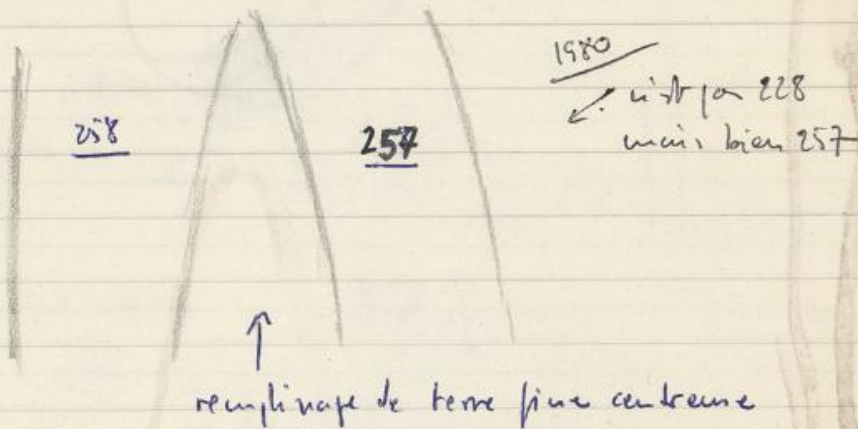 1980
n'est pas 228
mais bien 257
258
257
remplissage de terre fine cendreuse